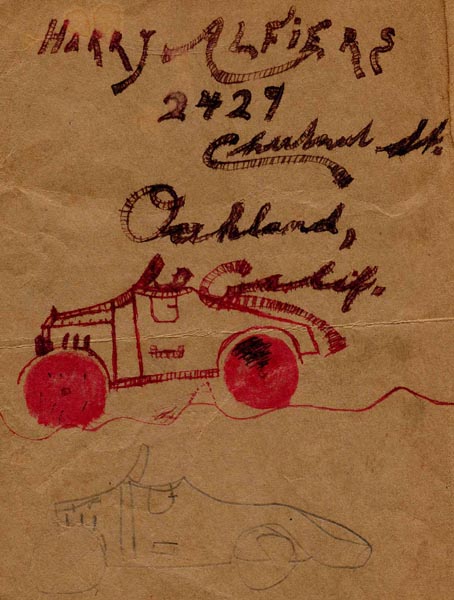 HARRY ALFIERS
2429
Chestnut St.
Oakland,
Calif.